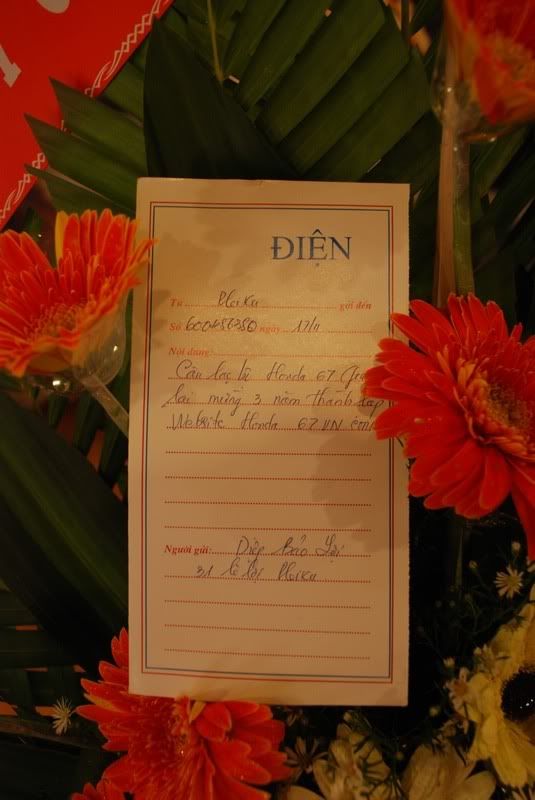 ĐIỆN
Từ Pleiku gửi đến
Số 600486380 ngày 17/11
Nội dung:
Câu lạc bộ Honda 67 Gia
lai mừng 3 năm thành lập
Website Honda 67 VN com
Người gửi: Diệp Bảo
31 lê lợi Pleiku